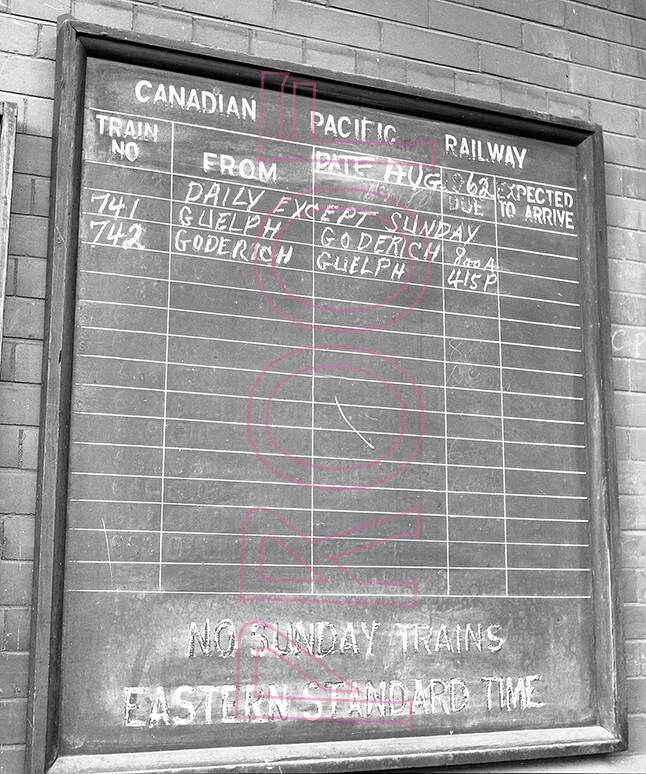 CANADIAN PACIFIC RAILWAY
TRAIN NO FROM DATE AUG 1962 DUE EXPECTED TO ARRIVE
DAILY EXCEPT SUNDAY
741 GUELPH GODERICH 800A
742 GODERICH GUELPH 415P
NO SUNDAY TRAINS
EASTERN STANDARD TIME